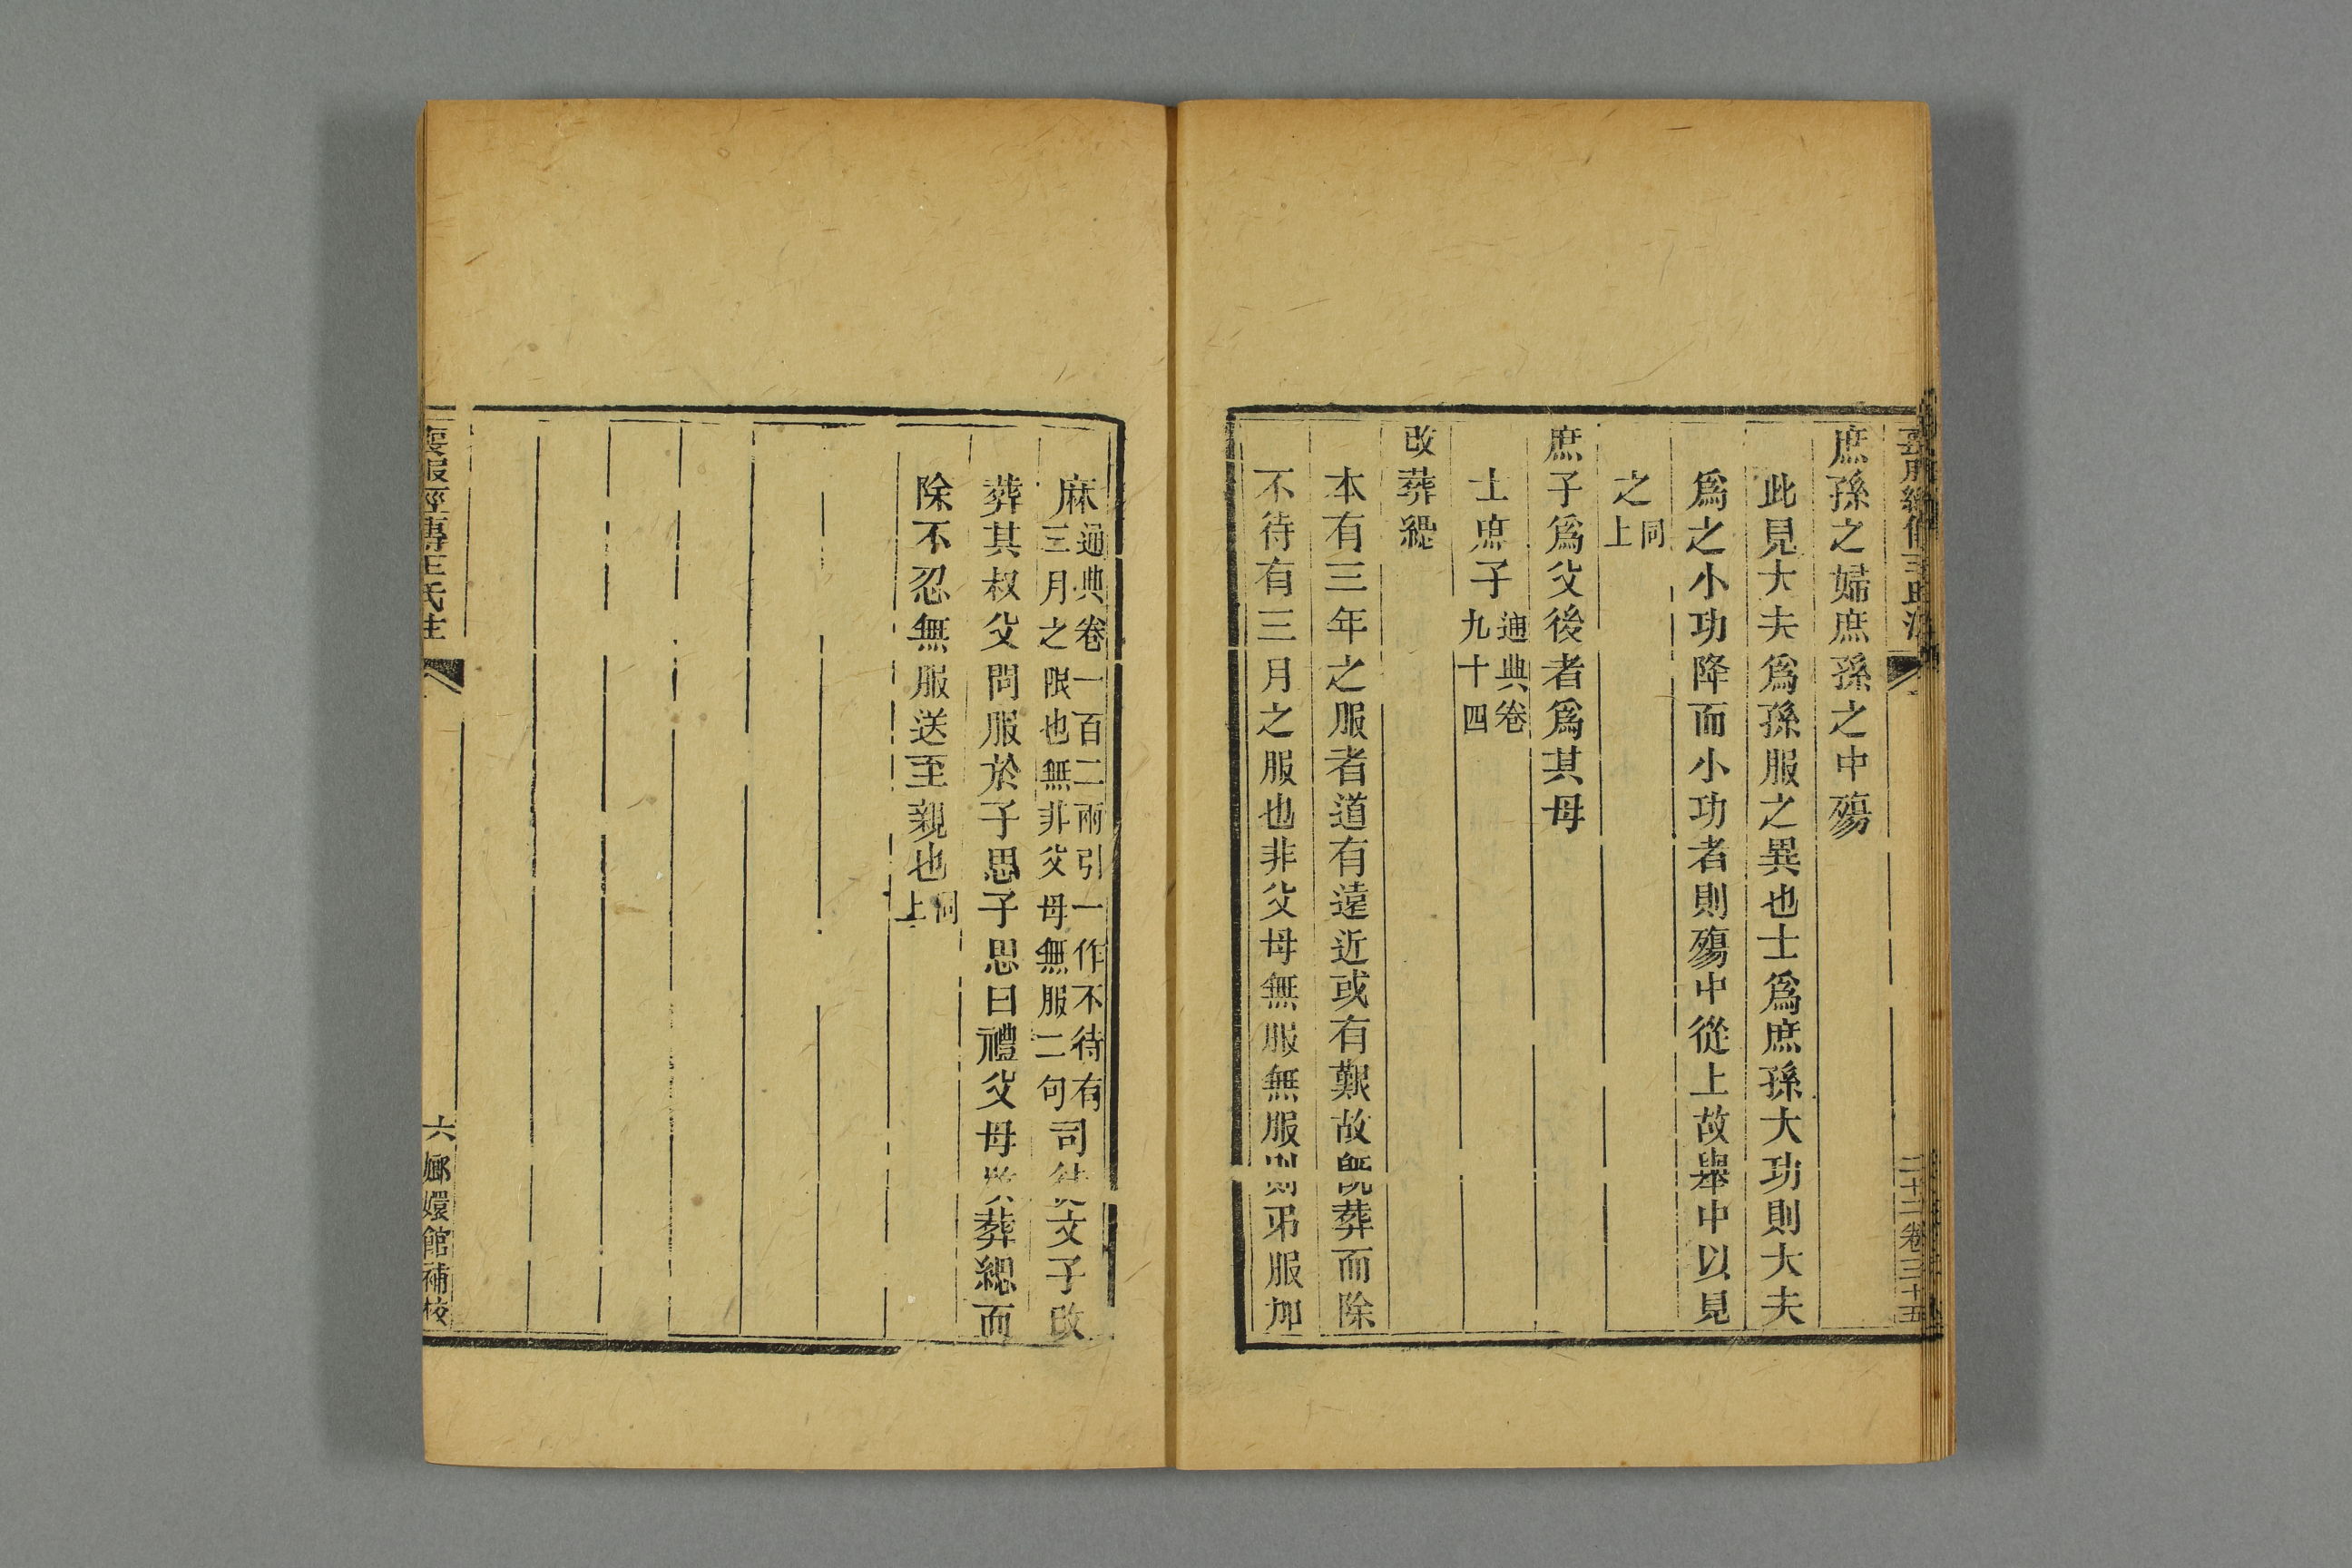 庶孫之婦庶孫之中殤
此見大夫爲孫服之異也士爲庶孫大功則大夫
爲之小功降而小功者則殤中從上故舉中以見
之同上
庶子爲父後者爲其母
士庶子通典卷九十四
改葬緦
本有三年之服者道有遠近或有艱故既葬而除
不待有三月之服也非父母無服無服則弔服加
麻通典卷一百二兩引一作不待有三月之限也無非父母無服二句司徒文子改
葬其叔父問服於子思子思曰禮父母改葬緦而
除不忍無服送至親也同上
喪服經傳王氏注
六嫏嬛館補校